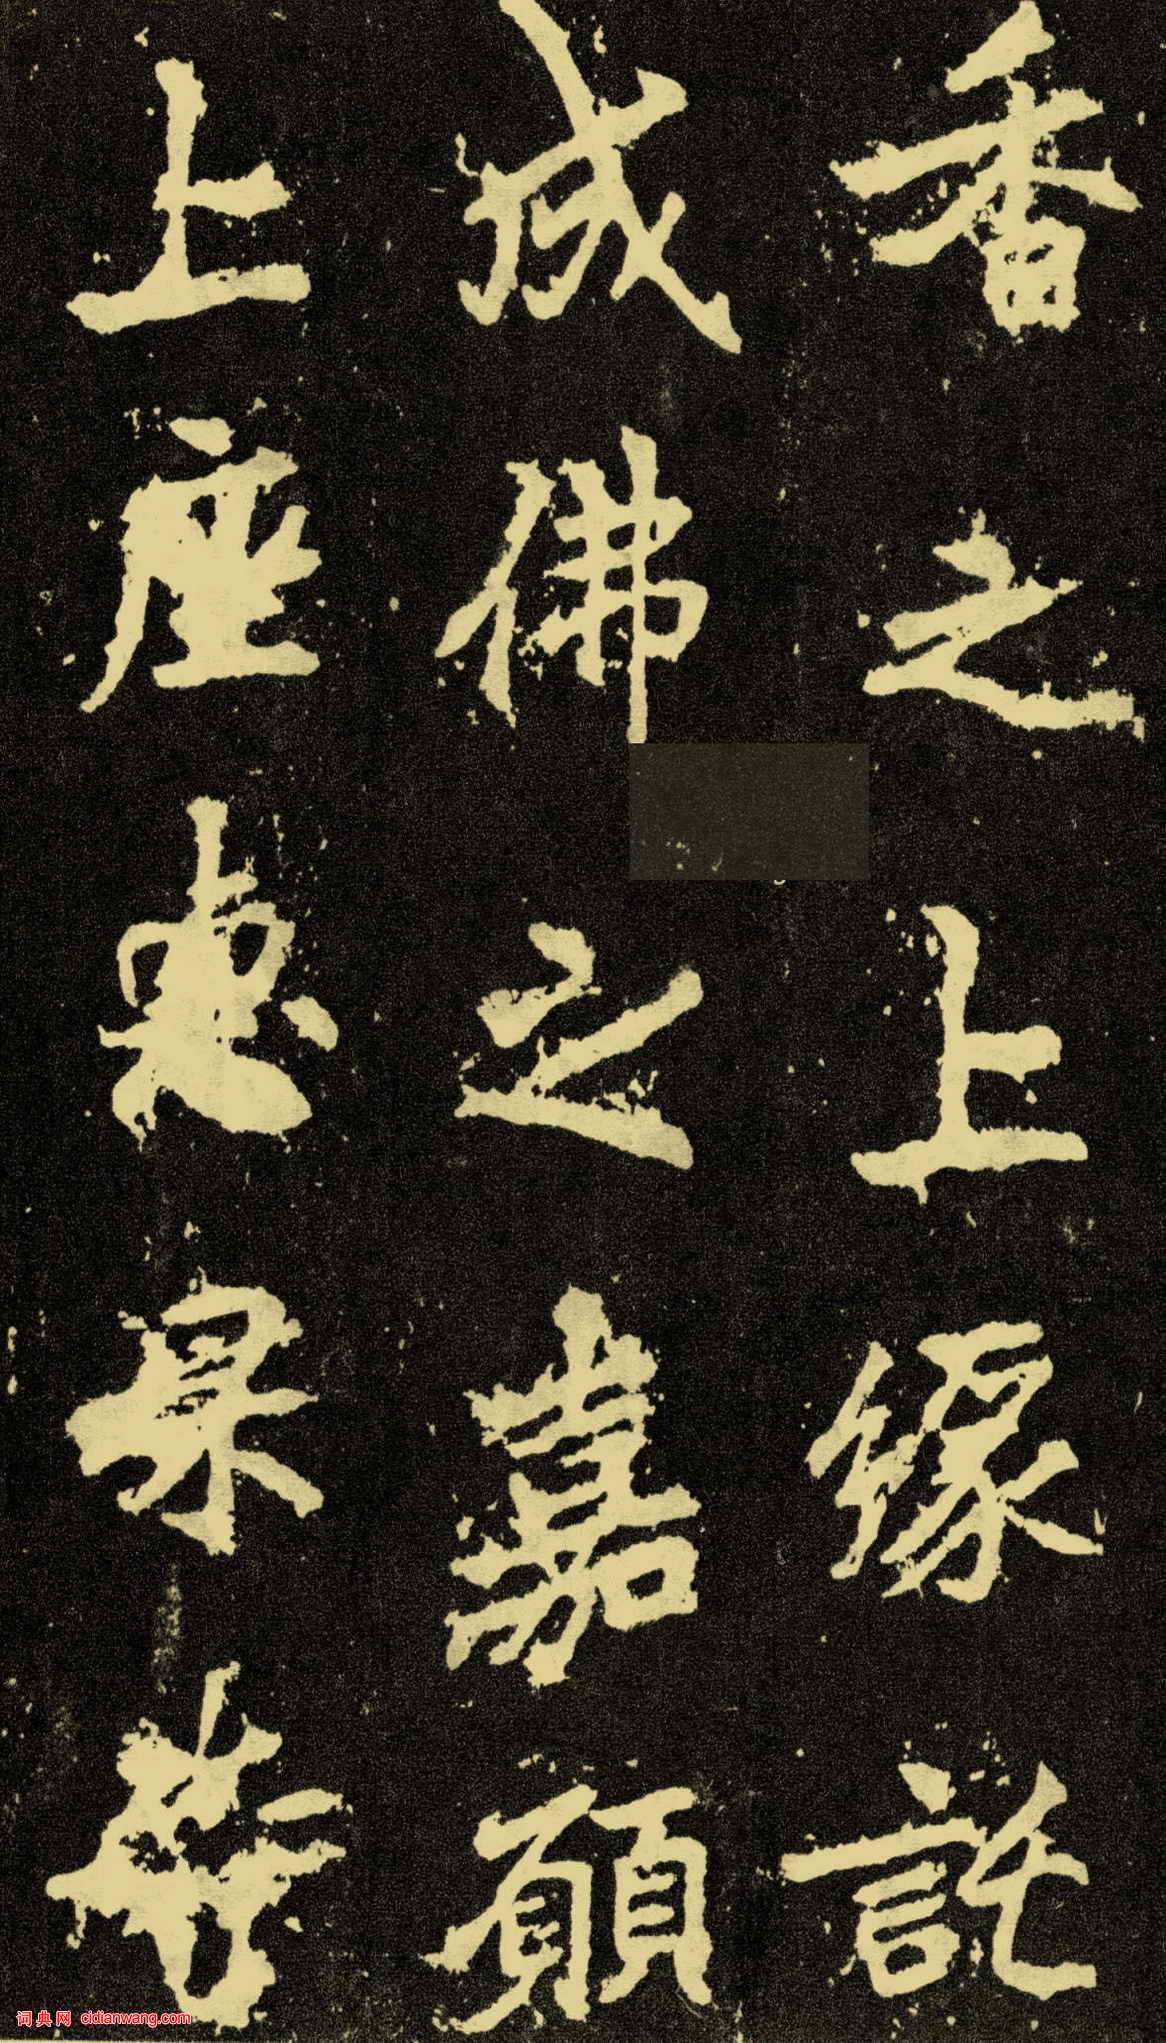 香之上緣託
成佛之嘉願
上座惠杲寺
词典网 cidianwang.com